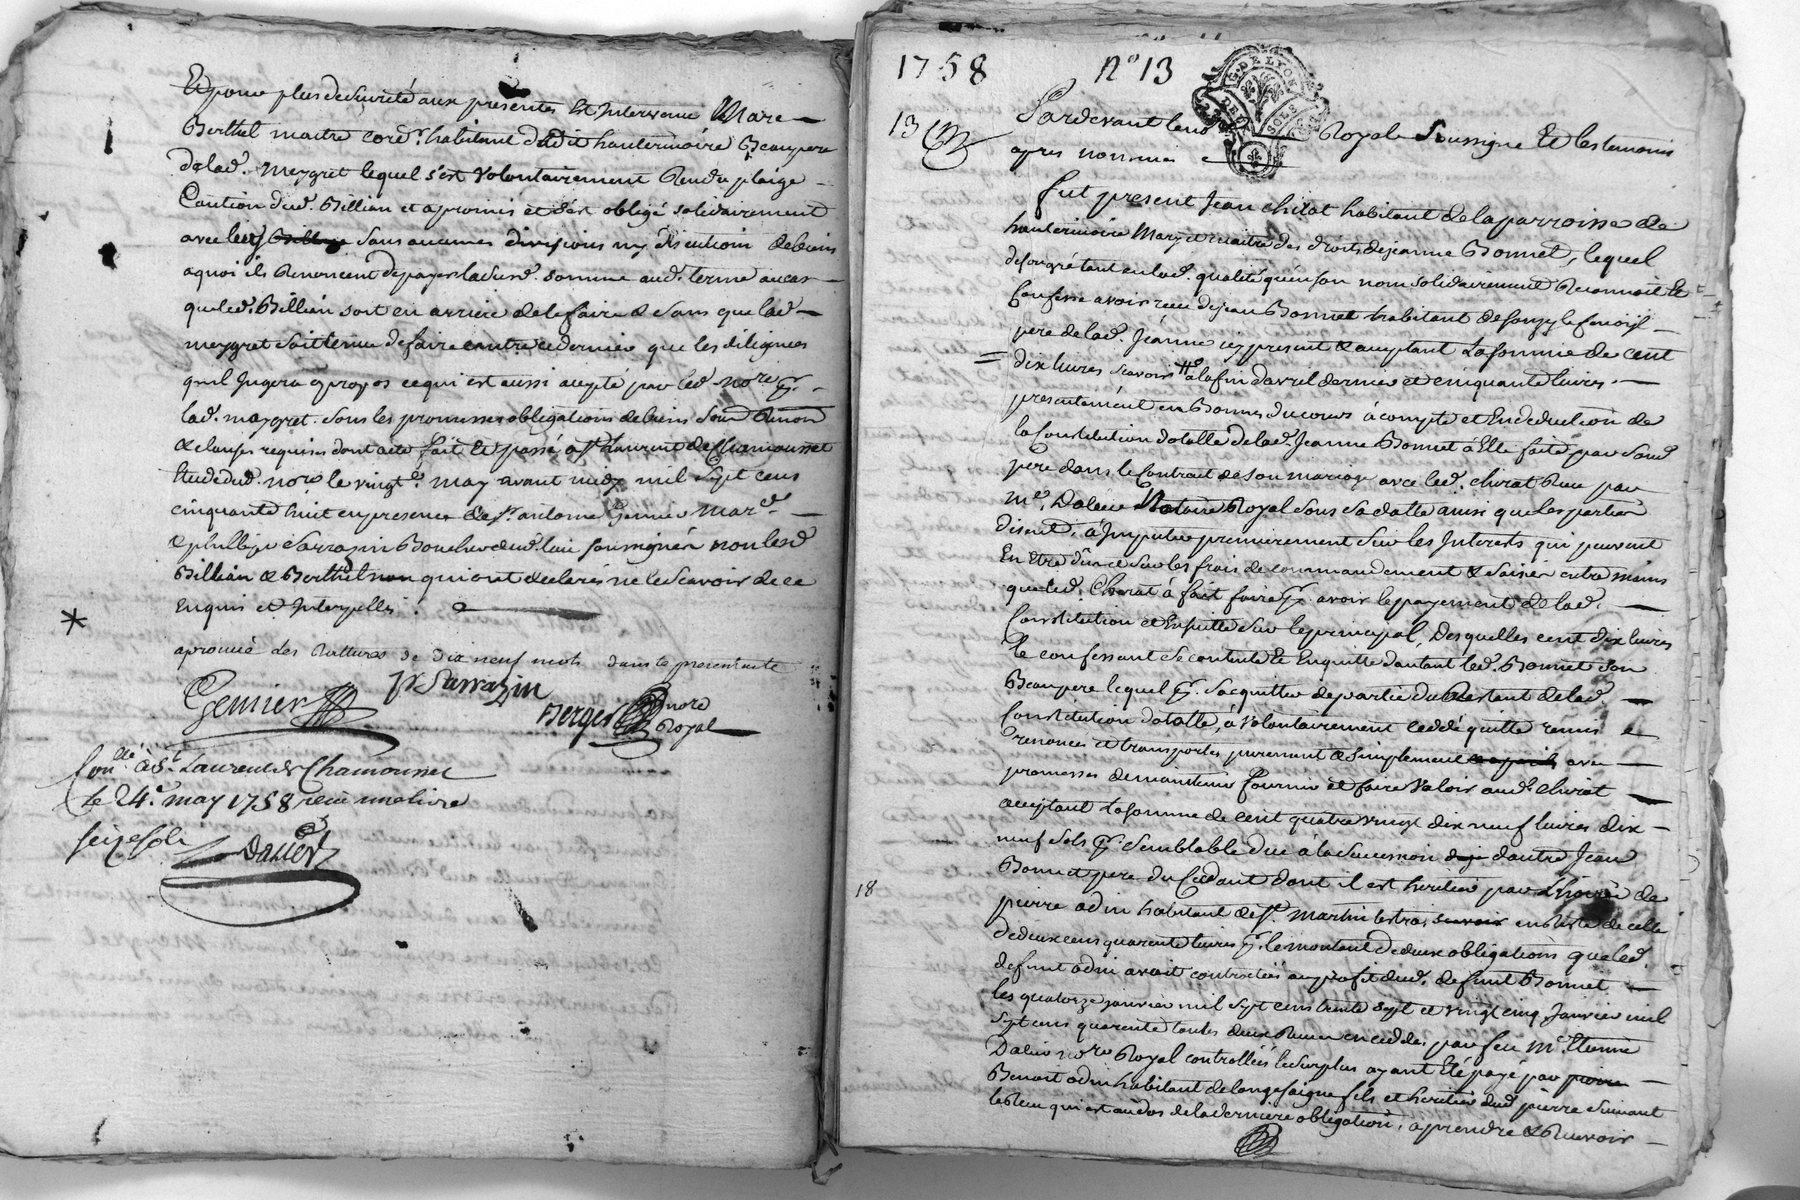 Et pour plus de sureté aux presentes Est Intervenu Marc
Berthel maitre cord.r habitant dudit hauterivoire Beaupere
de lad. meygret lequel s'est volontairement Rendu plaige
Caution dud. Billian et a promis et s'est obligé solidairement
avec luy sans aucunes divisions ny discution de biens
a quoi ils Renoncent de payer lad. somme aud. terme au cas
que led. Billian soit en arriere de le faire & sans que lad.
meygret soit tenue de faire contre ce dernier que les diligences
quil Jugera a propos ce qui est aussi accepté par led. no.re p.r
lad. meygret. sous les promesses obligations de biens
& clauses requises dont acte fait et passé a S.t Laurent de Chamousset
Etude dud. no.re le vingt may avant midy mil sept cens
cinquante huit en presence de S.r antoine Genier mar.d
& phillipe Sarrazin Boucher dud. lieu soussignés non lesd.
Billian & Berthel qui ont declarés ne le scavoir de ce
Enquis et Interpellés.
aprouvé les Rattures de dix neuf mots dans le presentacte
Genier
p Sarrazin
Berger no.re Royal
Con.llé à S.t Laurent de Chamousset
le 24.e may 1758 recu une livre
seize sols
Dalier
1758 N° 13
13
G. DE LYON
DEUX SOLS
Pardevant le no.re Royal Soussigné Et les temoins
apres nommés
fut present Jean chirat habitant de la parroisse de
hauterivoire Mary et maitre des droits de jeanne Bonnet, lequel
de son gré tant en lad. qualité qu'en son nom solidairement Reconnoit Et
Confesse avoir recu de jean Bonnet habitant de
pere de lad. Jeanne icy present & acceptant La somme de cent
dix livres scavoir a la fin davril dernier et cinquante livres
presentement en Bonnes du cours à compte et En deduction de
la Constitution dotalle de lad. Jeanne Bonnet à Elle faite par sond.
pere dans le Contrat de son mariage avec led. chirat Recu par
M.e Dalier Notaire Royal sous sa datte ainsi que les parties
disent, à Imputer premierement sur les Interets qui peuvent
En Etre dus et sur les frais de commandement & saisie entre mains
que led. Chirat à fait faire p.r avoir le payement de lad.
Constitution et Ensuitte sur le principal, Desquelles cent dix livres
le confessant se contente Et Enquitte dautant led. Bonnet son
Beaupere lequel p.r s'acquitter de partie du Restant de lad.
Constitution dotalle, à volontairement ceddé quitte remis
renoncés et transportés purement & simplement avec
promesses de maintenir fournir et faire valoir aud. chirat
acceptant La somme de cent quatre vingt dix neuf livres dix
neuf sols p.r semblable due à la succession dautre Jean
Bonnet pere du Cedant dont il est heritier par de
18
pierre adin habitant de S.t martin lestra en reste de celle
de deux cens quarente livres p.r le montant de deux obligations que led.
defunt adin avoit contractées au profit dud. defunt Bonnet
les quatorze janvier mil sept cens trente sept et vingt cinq Janvier mil
sept cens quarente toutes deux par feu M.e Etienne
Dalier no.re Royal controllées le surplus ayant Eté payé par
Benoit adin habitant de longessaigne fils et heritier dud. pierre suivant
le Recu qui est au dos de la derniere obligation, a prendre & Recevoir